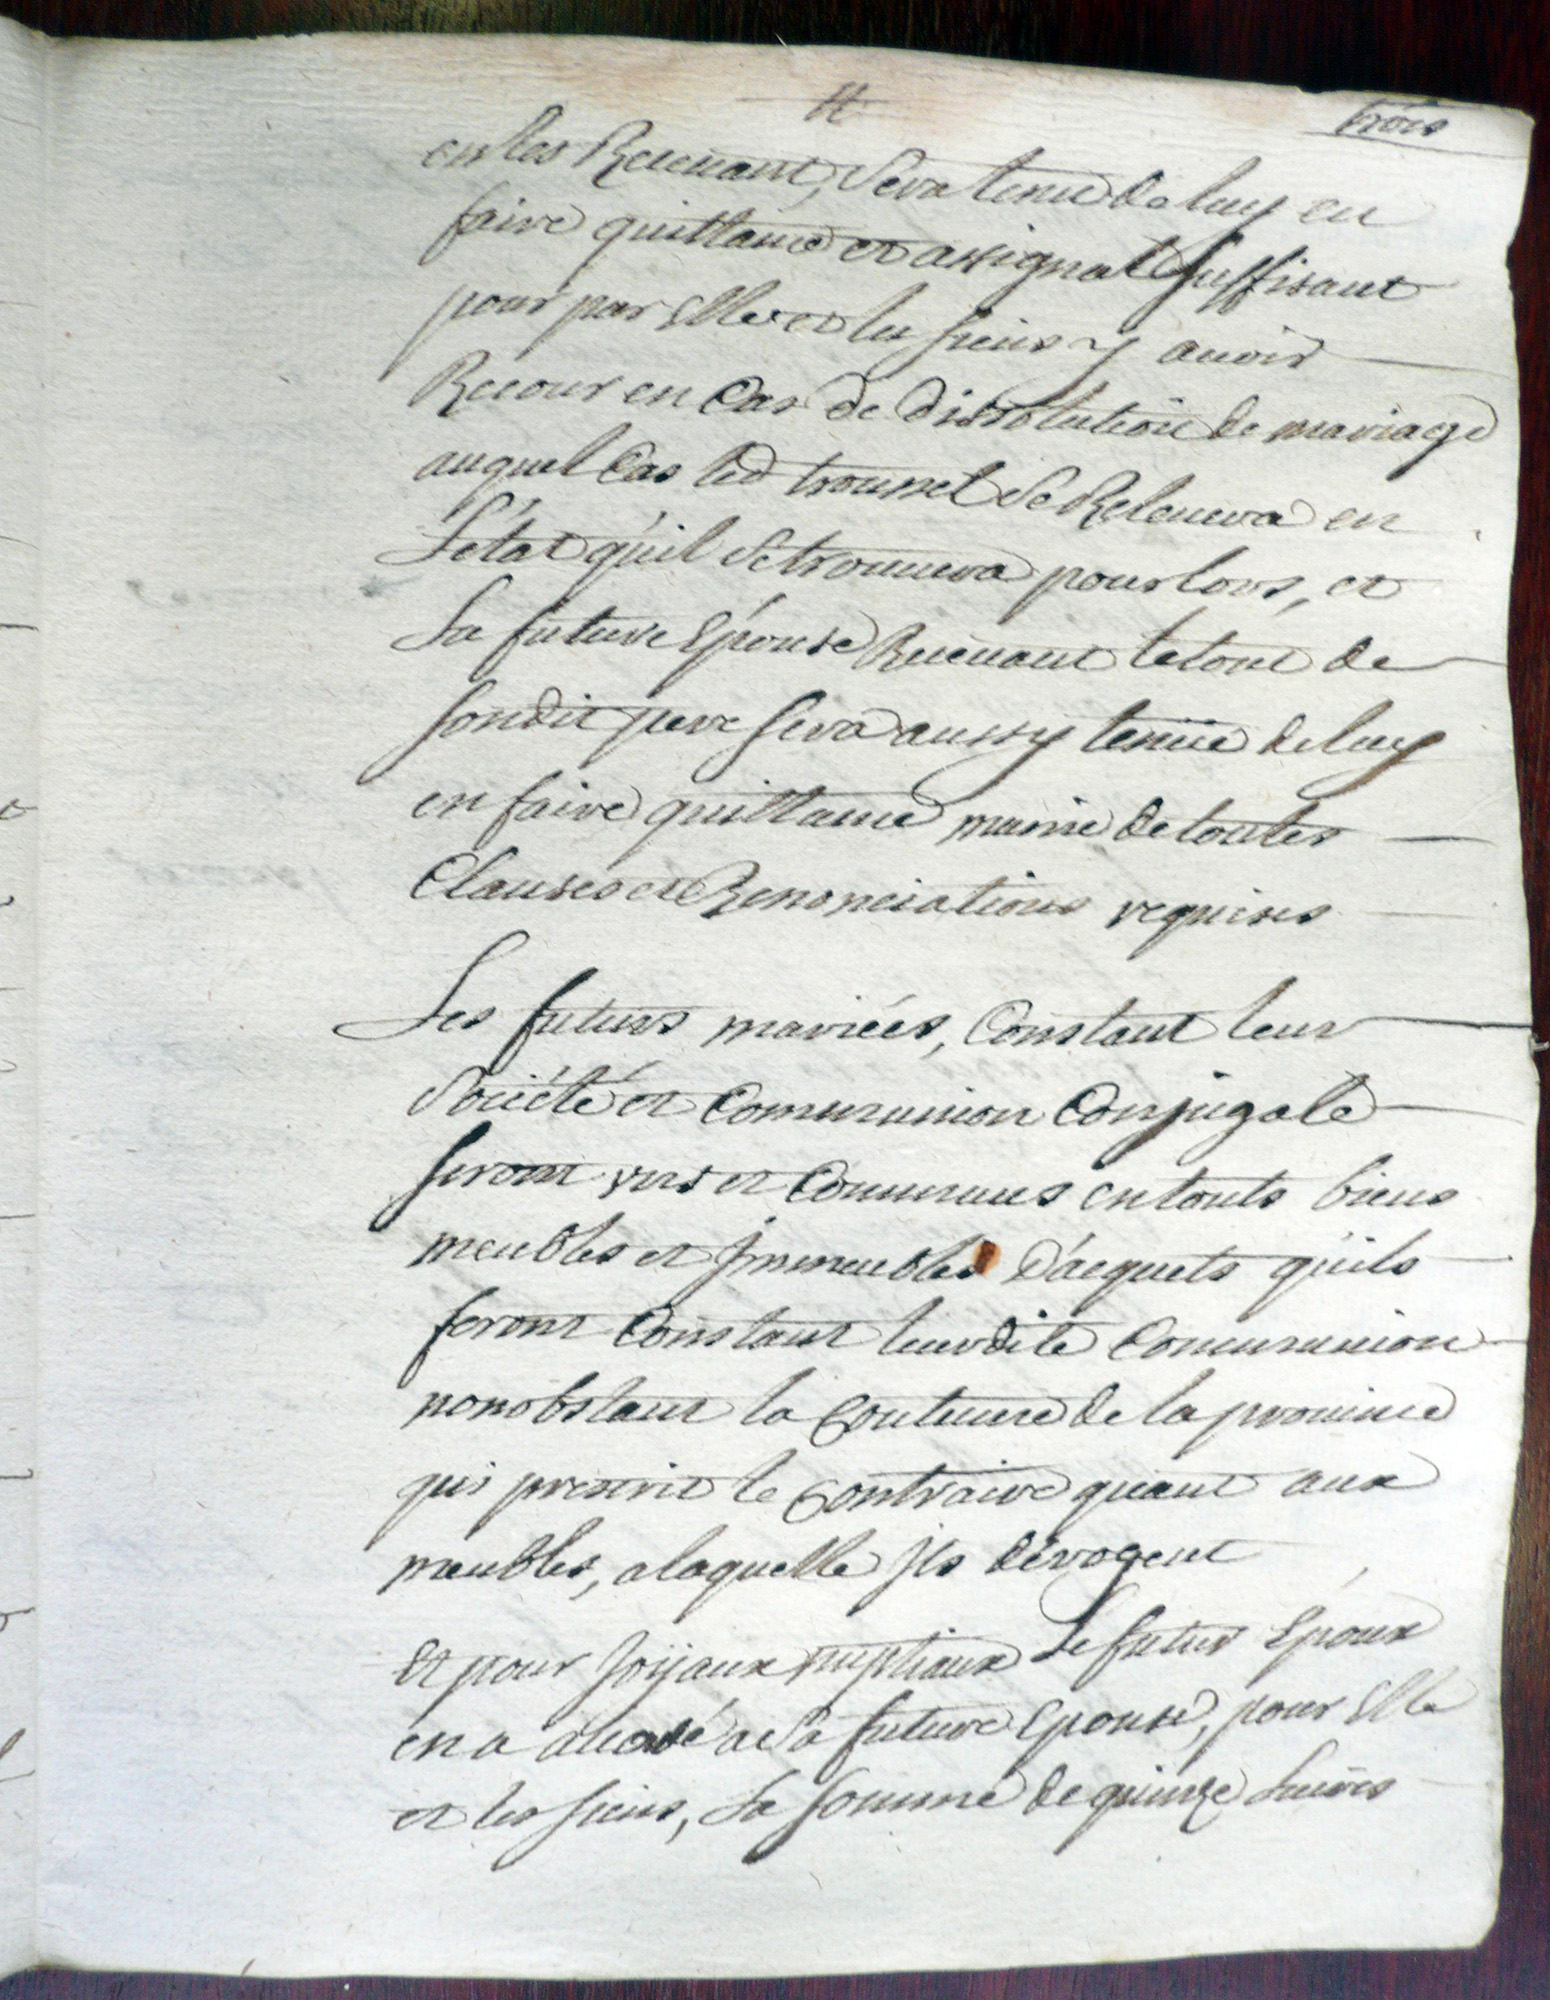 trois
en les Recevant, sera tenu de luy en
faire quittance et assignat suffisant
pour par Elle et les siens y avoir
Recour en Cas de dissolution de mariage
auquel Cas led trousset se Relevera en
L'état qu'il se trouvera pour lors, et
La future Epouse Recevant le tout de
sondit pere sera aussy tenüe de luy
en faire quittance munie de toutes
Clauses et Renonciations requises
Les futurs mariées, Constant leur
société et Communion Conjugale
seront uns et Communs en touts biens
meubles et Jmmeubles D'acquets qu'ils
feront Constant leurdite Communion
nonobstant la Coutume de la province
qui prescrit le Contraire quant aux
meubles, a laquelle Jls dérogent
Et pour Joÿaux nuptiaux Le futur Epoux
en a accordé a Sa future Epouse, pour Elle
et les siens, La somme de quinze Livres